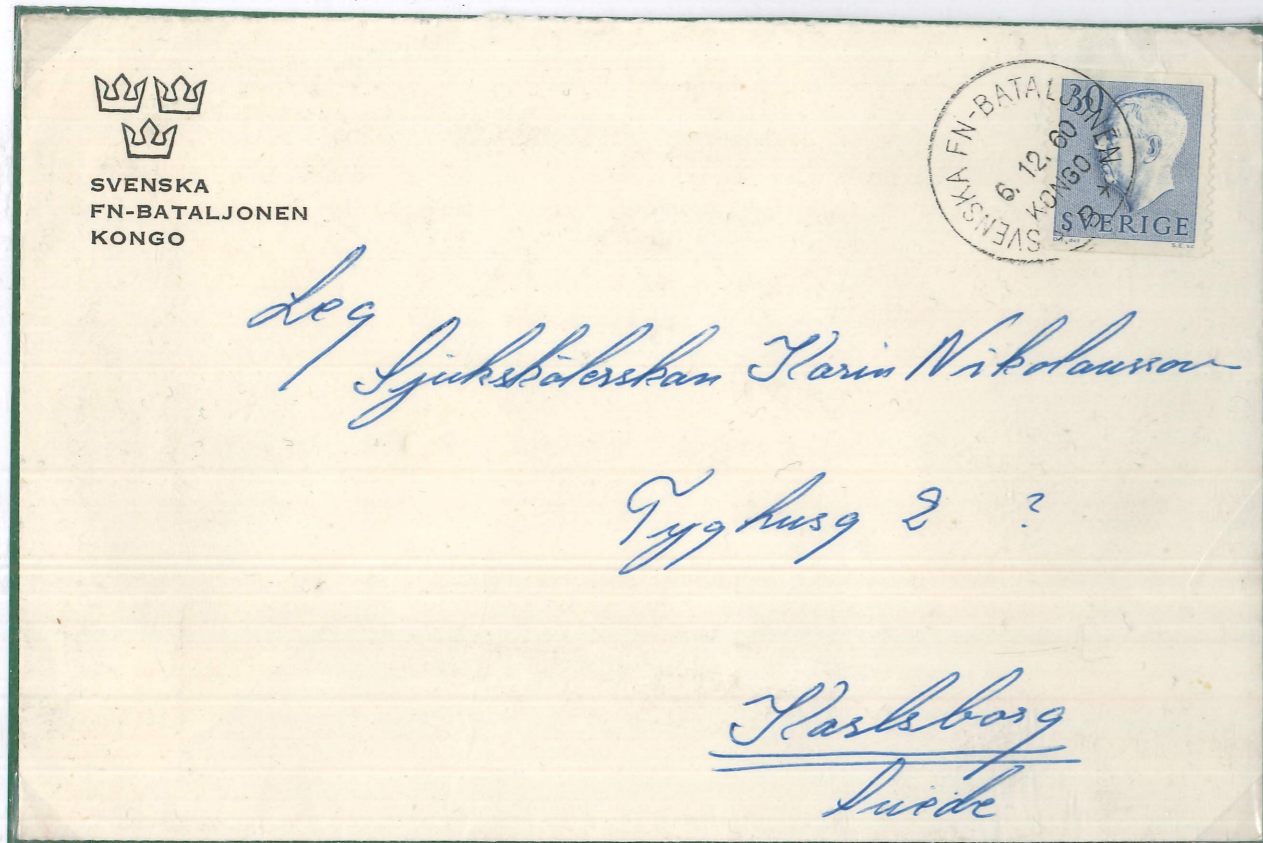 SVENSKA
FN-BATALJONEN
KONGO
SVENSKA FN-BATALJONEN *
6. 12. 60
KONGO
B
30
SVERIGE
Leg
Sjuksköterskan Karin Nikolausson
Tyghusg 2 ?
Karlsborg
Suède